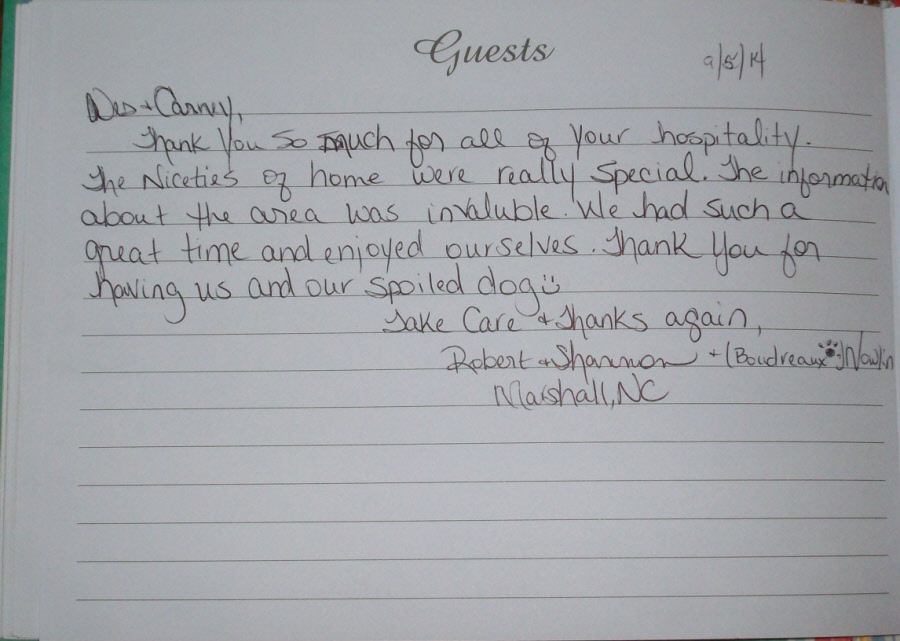 Guests
9/5/14
Wes + Carney,
Thank You so much for all of your hospitality.
The Niceties of home were really special. The information
about the area was invaluble. We had such a
great time and enjoyed ourselves. Thank You for
having us and our spoiled dog
Take Care + Thanks again,
Robert + Shannon + (Boudreaux) Nowlin
Marshall, NC